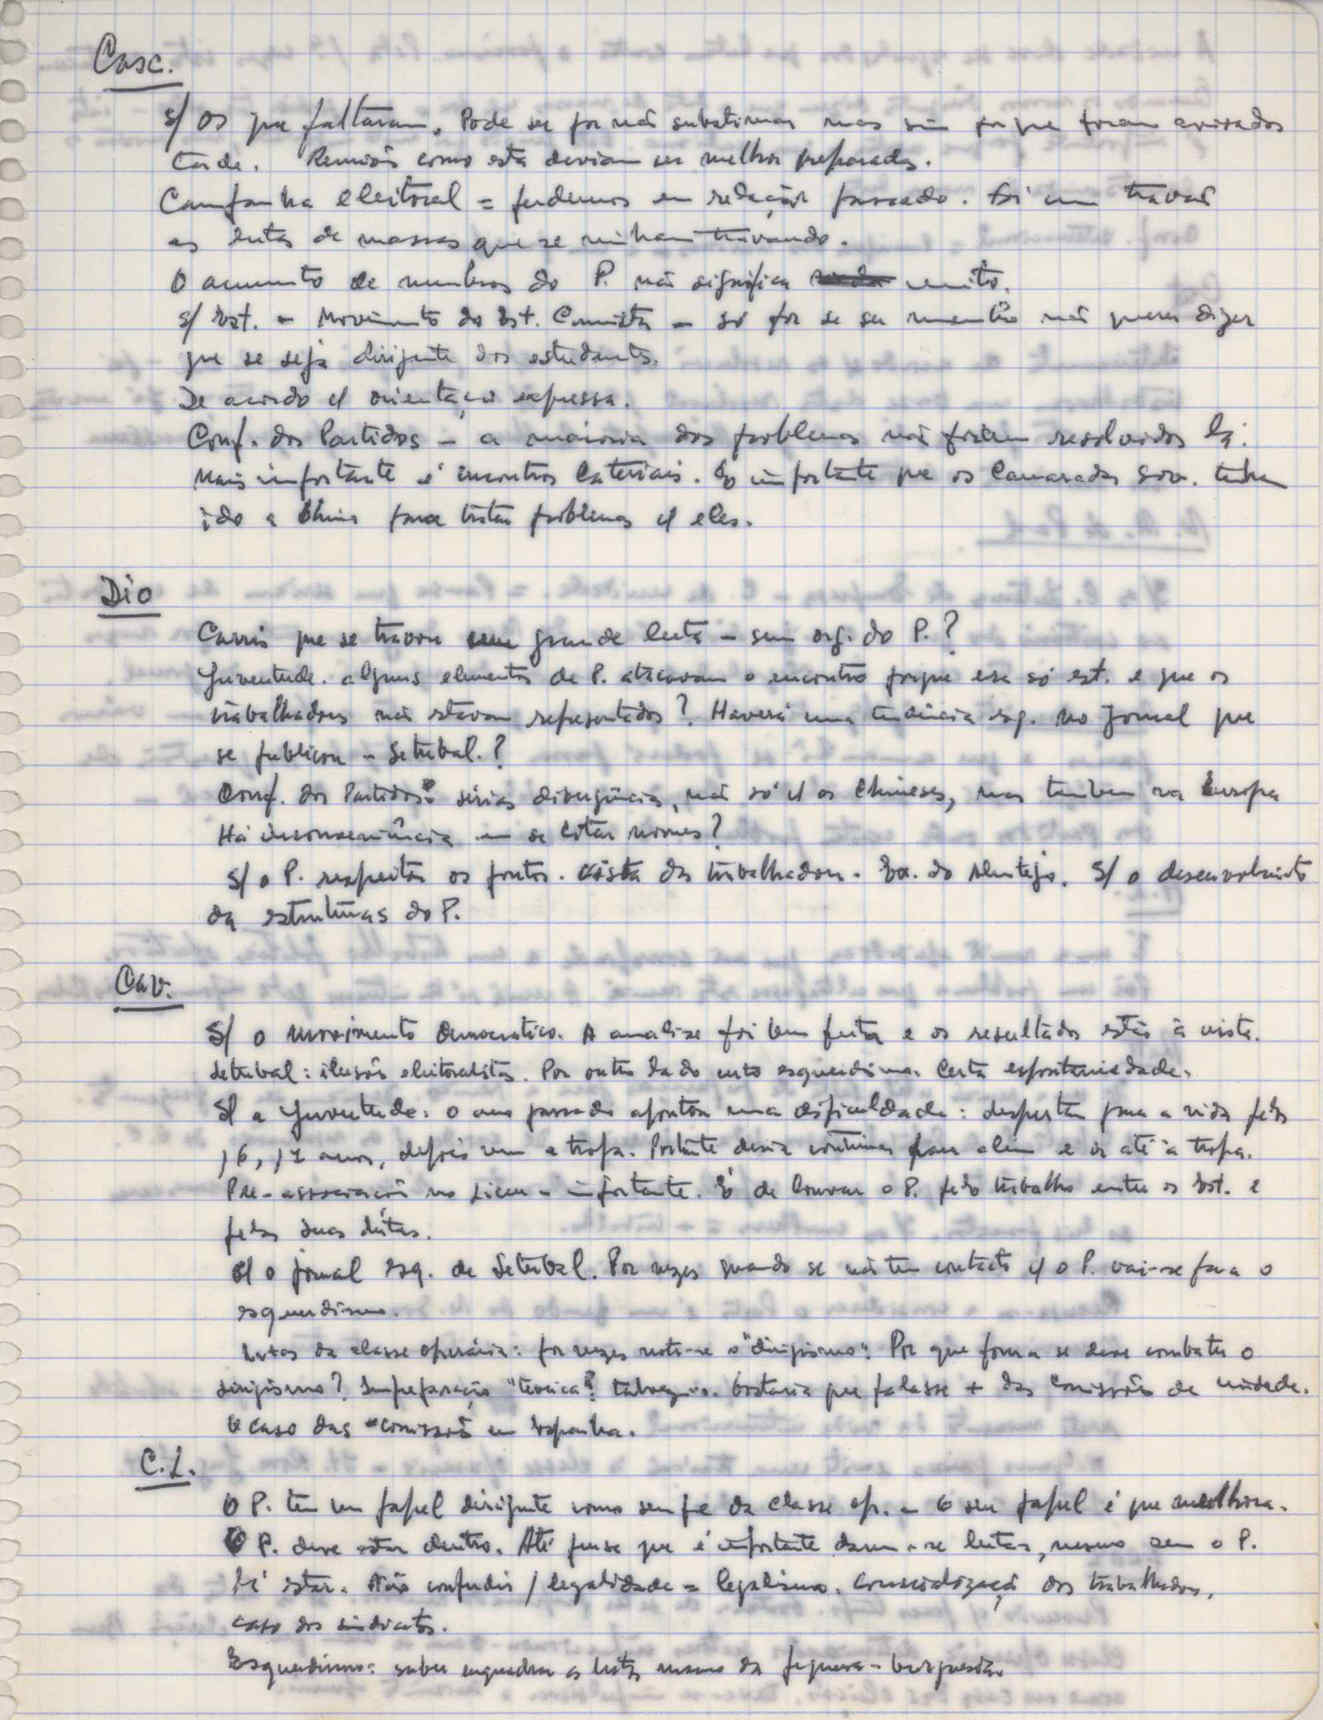 Casc.
S/ os que faltaram. Pode ser por não subestimar mas sim porque foram avisados
tarde. Reuniões como esta deviam ser melhor preparadas.
Campanha eleitoral = perdemos em relação passado. Foi um travar
as lutas de massas que se vinham travando.
O aumento de membros do P. não significa muito.
S/ Est. - Movimento do Est. Comunista - só por se ser membro não querer dizer
que se seja dirigente dos estudantes.
De acordo c/ orientação expressa.
Conf. dos Partidos - a maioria dos problemas não foram resolvidos lá.
Mais importante é encontros laterais. É importante que os Camaradas sov. tenham
ido a China para tratar problemas c/ eles.
Dio
Carris que se travou uma grande luta - sem org. do P.?
Juventude. alguns elementos de P. atacavam o encontro porque era só est. e que os
trabalhadores não estavam representados? Haverá uma tendência esq. no Jornal que
se publicou - Setubal.?
Conf. dos Partidos: sérias divergências, não só c/ os Chineses, mas também na Europa
Há inconveniência em se citar nomes?
S/ o P. respeitar os pontos. vista dos trabalhadores. Ex. do Alentejo. S/ o desenvolvimento
da estruturas do P.
Cav.
S/ o movimento Democrático. A analise foi bem feita e os resultados estão à vista.
Setubal: ilusões eleitoralistas. Por outro lado certo esquerdismo. Certa espontaniedade.
S/ a Juventude: o ano passado apontou uma dificuldade: despertar para a vida pelos
16, 17 anos, depois vem a tropa. Portanto devia continuar para alem e ir até à tropa.
Pre-associação no Liceu - importante. É de louvar o P. pelo trabalho entre os Est. e
pelas suas lutas.
S/ o jornal esq. de Setubal. Por vezes quando se não tem contacto c/ o P. vai-se para o
esquerdismo.
Lutas da classe operária: por vezes nota-se o "dirigismo". Por que forma se deve combater o
dirigismo? Impreparação "teorica"? talvez. Gostaria que falasse + das Comissões de unidade.
O caso das comissões em Espanha.
C.L.
O P. tem um papel dirigente como sempre da classe op. - O seu papel é que melhora.
O P. deve estar dentro. Até penso que é importante darem-se lutas, mesmo sem o P.
lá estar. Não confudir / legalidade = legalismo. Consciealização dos trabalhadores.
caso dos sindicatos.
Esquerdismo: saber enquadrar as lutas mesmo da pequena-burguesia.